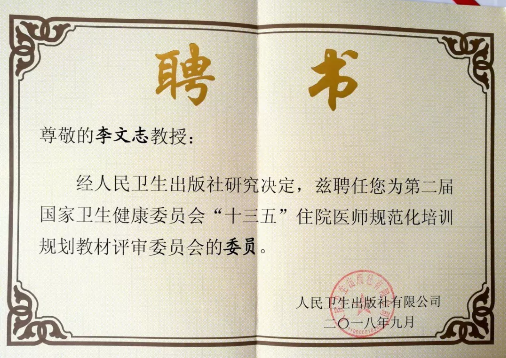 聘书
尊敬的李文志教授：
经人民卫生出版社研究决定，兹聘任您为第二届
国家卫生健康委员会“十三五”住院医师规范化培训
规划教材评审委员会的委员。
人民卫生出版社有限公司
二〇一八年九月